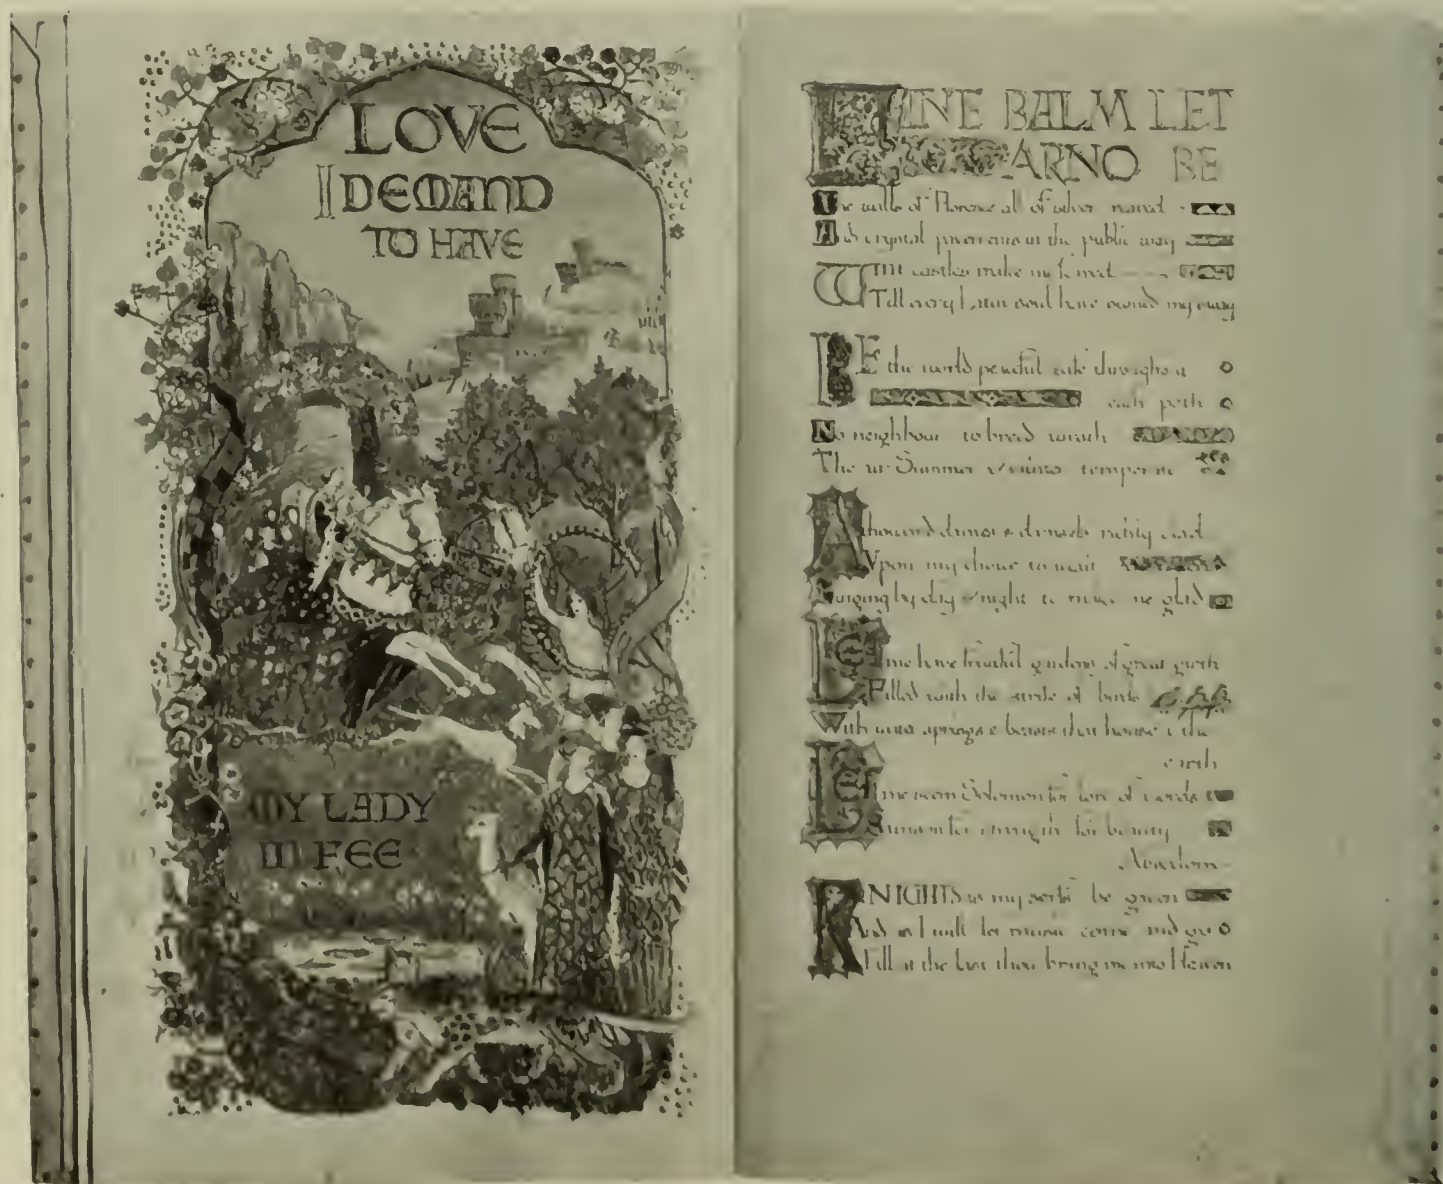 LOVE
I DEMAND
TO HAVE
MY LADY
IN FEE
FINE BALM LET
ARNO BE
The walls of Florence all of silver reared
And crystal pavements in the public way
With castles make me feared
Till every Latin soul have owned my sway
BE the world peaceful safe throughout
each path
No neighbour to breed wrath
The air Summer & winter temperate
A thousand dames & damsels richly clad
Upon my choice to wait
Singing by day & night to make me glad
LET me have fruitful gardens of great girth
Filled with the strife of birds
With water springs & beasts that house i the
earth
LET me seem Solomon for lore of words
Samson for strength for beauty
Absalom
KNIGHTS as my serfs be given
And as I will let music come and go
Till at the last thou bring me into Heaven